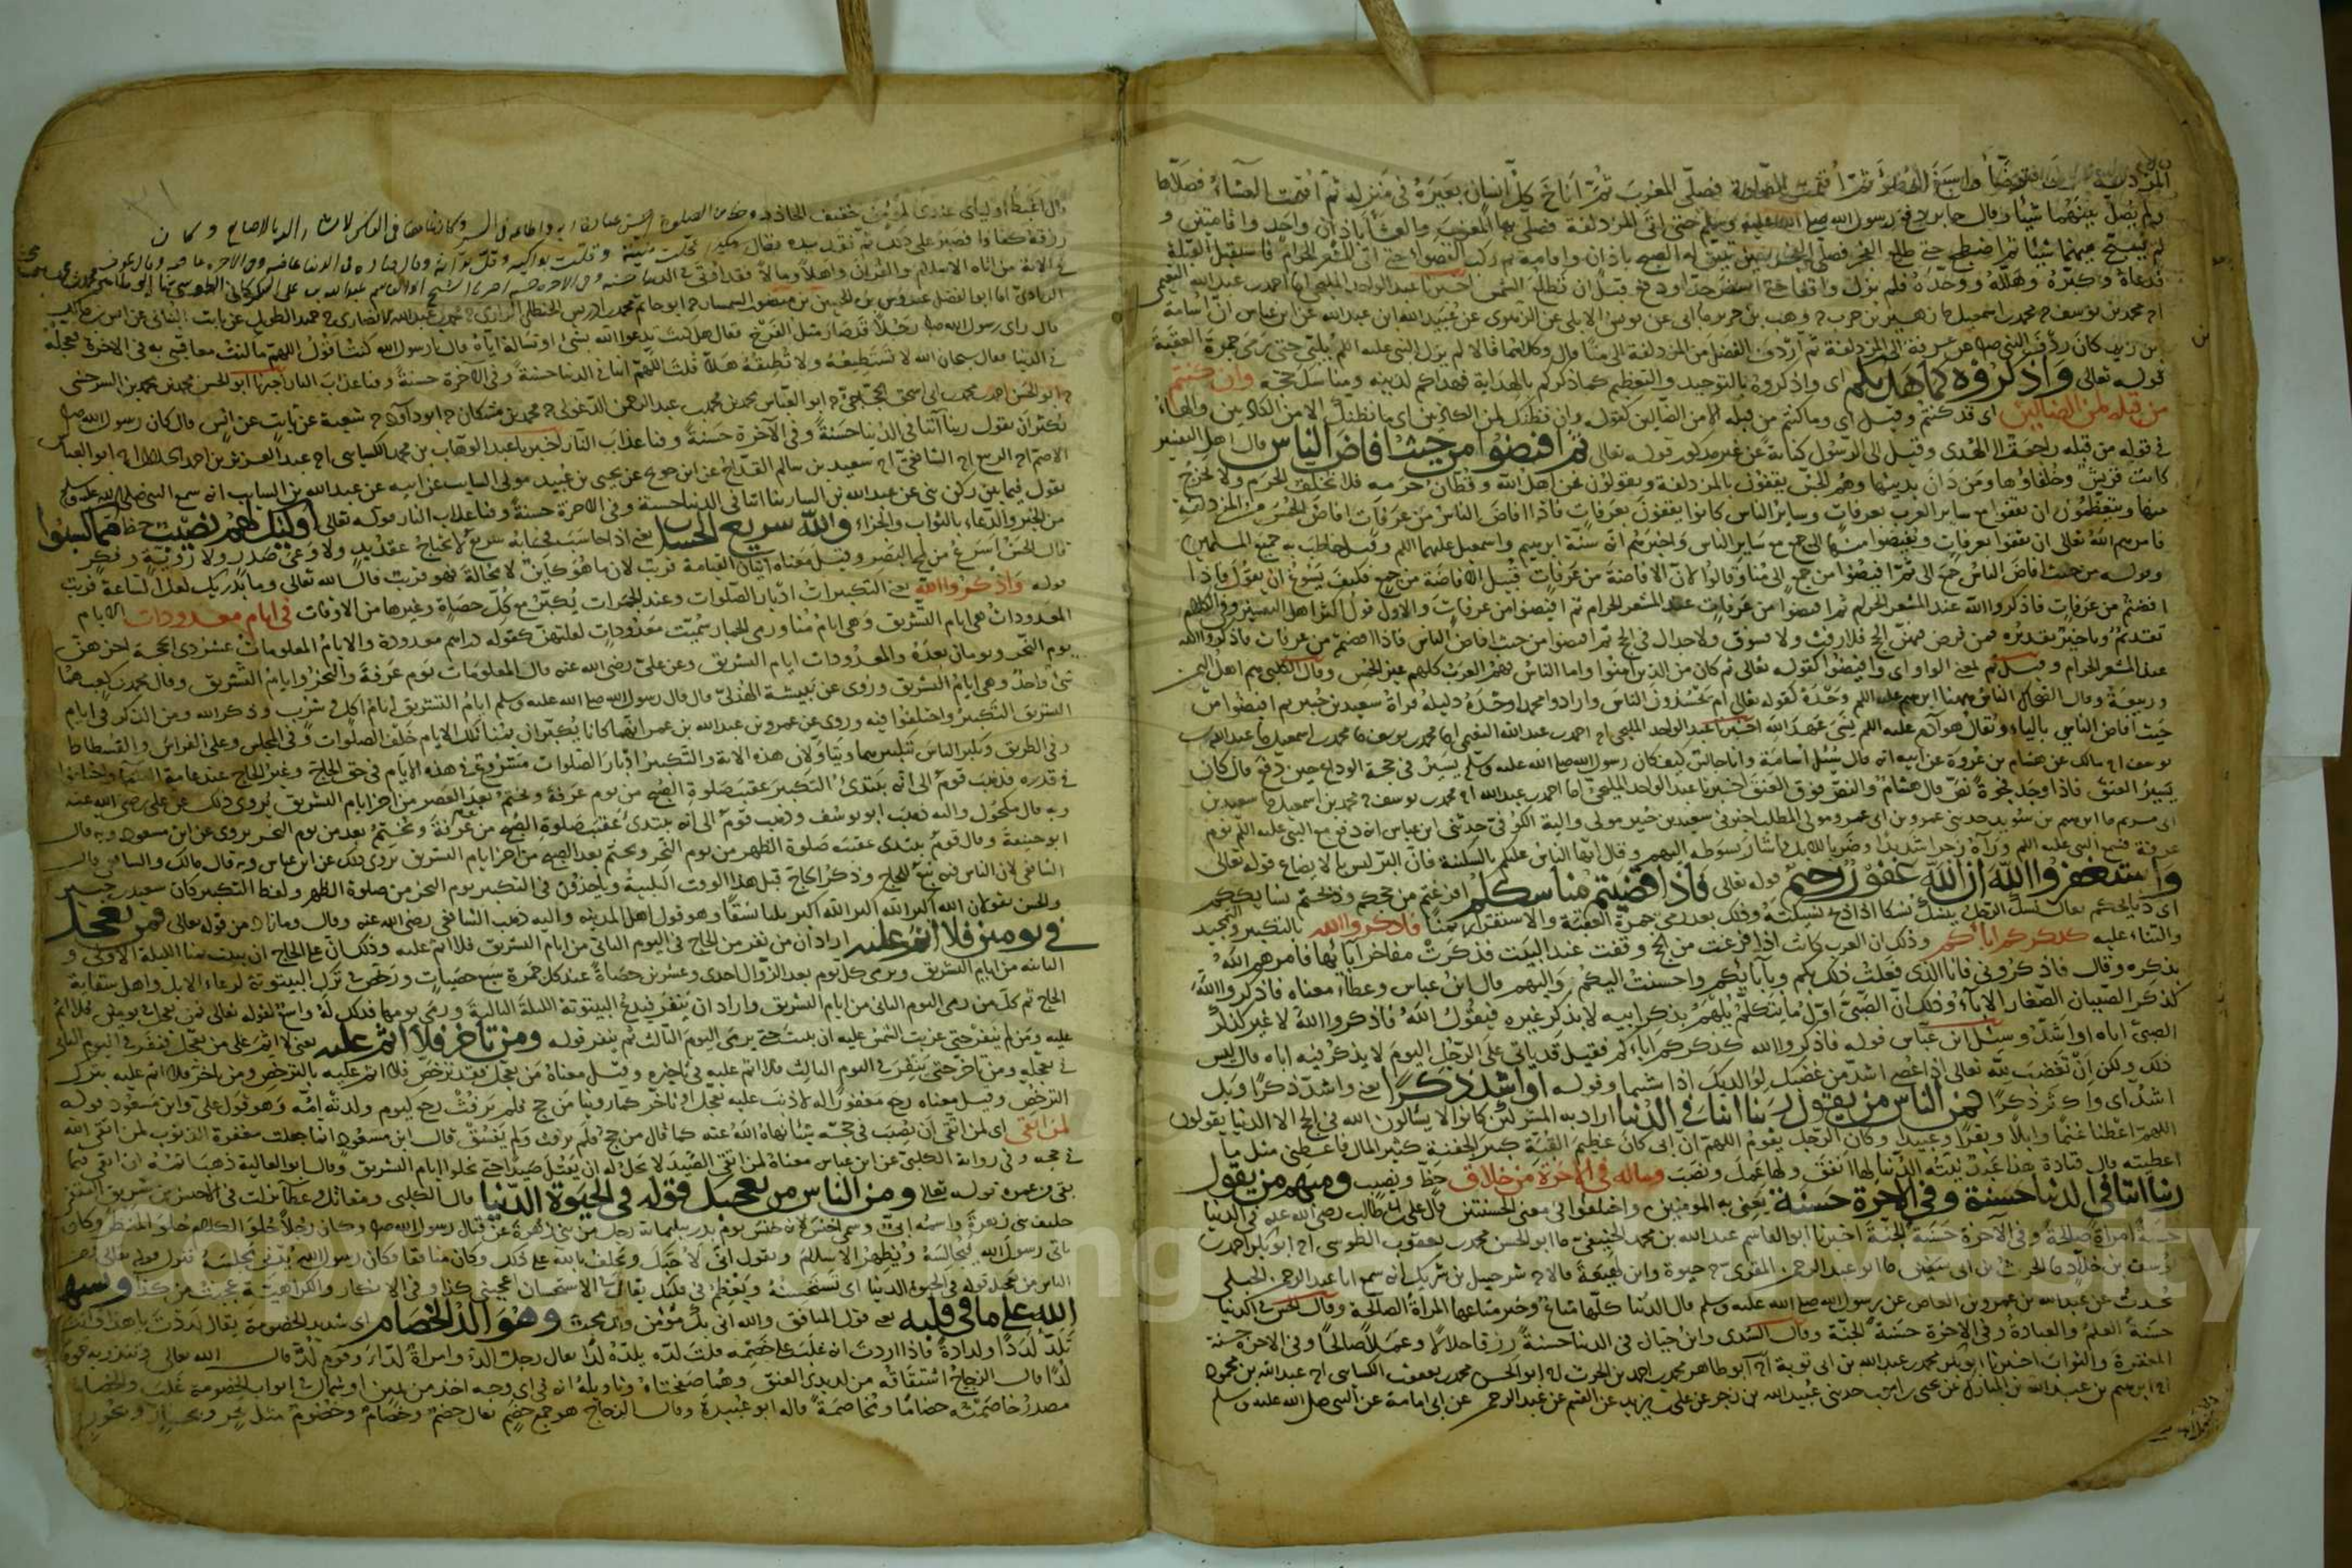 المزدلفة فتوضأ واسبغ الوضوء ثم اقيمت الصلوة فصلى المغرب ثم اناخ كل انسان بعيره في منزله ثم اقيمت العشاء فصلاها
ولم يصل بينهما شيئا وقال جابر دفع رسول الله صلى الله عليه وسلم حتى اتى المزدلفة فصلى بها المغرب والعشاء باذان واحد واقامتين و
لم يسبح بينهما شيئا ثم اضطجع حتى طلع الفجر فصلى الفجر حين تبين له الصبح باذان واقامة ثم ركب القصواء حتى اتى المشعر الحرام فاستقبل القبلة
فدعاه وكبره وهلله ووحده فلم يزل واقفا حتى اسفر جدا ودفع قبل ان تطلع الشمس اخبرنا عبد الواحد المليحي احمد بن عبد الله النعيمي
محمد بن يوسف محمد بن اسمعيل زهير بن حرب وهب بن جرير ابي عن يونس الايلي عن الزهري عن عبيد الله بن عبد الله عن ابن عباس ان اسامة
بن زيد كان ردف النبي صلعم من عرفة الى المزدلفة ثم اردف الفضل من المزدلفة الى منا قال وكلاهما قالا لم يزل النبي عليه السلم يلبي حتى رمى جمرة العقبة
قوله تعالى واذكروه كما هديكم اى واذكروه بالتوحيد والتعظيم كما ذكركم بالهداية فهداكم لدينه ومناسك حجه وان كنتم
من قبله لمن الضالين اى قد كنتم وقيل اى وما كنتم من قبله الا من الضالين كقوله وان نظنك لمن الكاذبين اى ما نظنك الا من الكاذبين والهاء
في قوله من قبله راجعة الى الهدى وقيل الى الرسول كناية عن غير مذكور قوله تعالى ثم افيضوا من حيث افاض الناس قال اهل التفسير
كانت قريش وحلفاؤها ومن دان بدينها وهم الحمس يقفون بالمزدلفة ويقولون نحن اهل الله وقطان حرمه فلا نخلف الحرم ولا نخرج
منها ويتعظمون ان يقفوا مع ساير العرب بعرفات وساير الناس كانوا يقفون بعرفات فاذا افاض الناس من عرفات افاض الحمس من المزدلفة
فامرهم الله تعالى ان يقفوا بعرفات ويفيضوا منها الى جمع مع ساير الناس واخبرهم انه سنة ابرهيم واسمعيل عليهما السلم وقيل خاطب به جميع المسلمين
وقوله من حيث افاض الناس جمع الى ثم افيضوا من جمع الى منا وقالوا لان الافاضة من عرفات قبل الافاضة من جمع فكيف يسوغ ان يقول فاذا
افضتم من عرفات فاذكروا الله عند المشعر الحرام ثم افيضوا من عرفات والاول قول اكثر اهل التفسير وفي الكلام
تقديم وتاخير تقديره فمن فرض فيهن الحج فلا رفث ولا فسوق ولا جدال في الحج ثم افيضوا من حيث افاض الناس فاذا افضتم من عرفات فاذكروا الله
عند المشعر الحرام وقيل ثم بمعنى الواو اى وافيضوا كقوله تعالى ثم كان من الذين امنوا واما الناس فهم العرب كلهم غير الحمس وقال الكلبي هم اهل اليمن
وربيعة وقال الضحاك الناس ههنا ابرهيم عليه السلم وحده كقوله تعالى ام يحسدون الناس وارادوا محمدا وحده دليله قراة سعيد بن جبير ثم افيضوا من
حيث افاض الناسي بالياء ويقال هو آدم عليه السلم نسي عهد الله اخبرنا عبد الواحد المليحي احمد بن عبد الله النعيمي محمد بن يوسف محمد بن اسمعيل عبد الله بن
يوسف مالك عن هشام بن عروة عن ابيه انه قال سئل اسامة وانا جالس كيف كان رسول الله صلى الله عليه وسلم يسير في حجة الوداع حين دفع قال كان
يسير العنق فاذا وجد فجوة نص قال هشام والنص فوق العنق اخبرنا عبد الواحد المليحي احمد بن عبد الله محمد بن يوسف محمد بن اسمعيل سعيد بن
ابي مريم ابرهيم بن سويد حدثني عمرو بن ابي عمرو مولى المطلب اخبرني سعيد بن جبير مولى والبة الكوفي حدثني ابن عباس انه دفع مع النبي عليه السلم يوم
عرفة فسمع النبي عليه السلم وراءه زجرا شديدا وضربا للابل فاشار بسوطه اليهم وقال ايها الناس عليكم بالسكينة فان البر ليس بالايضاع قوله تعالى
واستغفروا الله ان الله غفور رحيم قوله تعالى فاذا قضيتم مناسككم اى فرغتم من حجكم وذبحتم نسايككم
اى ذبايحكم يقال نسك الرجل ينسك نسكا اذا ذبح نسيكته وذلك بعد رمى جمرة العقبة والاستقرار بمنا فاذكروا الله بالتكبير والتحميد
والثناء عليه كذكركم اباءكم وذلك ان العرب كانت اذا فرغت من الحج وقفت عند البيت فذكرت مفاخر آبائها فامرهم الله
بذكره وقال فاذكروني فانا الذى فعلت ذلك بكم وبآبايكم واحسنت اليكم واليهم قال ابن عباس وعطاء معناه فاذكروا الله
كذكر الصبيان الصغار الاباء وذلك ان الصبي اول ما يتكلم يلهم بذكر ابيه لا بذكر غيره فيقول الله فاذكروا الله لا غير كذكر
الصبى اباه او اشد وسئل ابن عباس قوله فاذكروا الله كذكركم اباءكم فقيل قد ياتي على الرجل اليوم لا يذكر فيه اباه قال ليس
ذلك ولكن ان تغضب لله تعالى اذا عصى اشد من غضبك لوالديك اذا شتما وقوله او اشد ذكرا يعني واشد ذكرا وبل
اشد اى واكثر ذكرا فمن الناس من يقول ربنا اتنا في الدنيا اراد به المشركين كانوا لا يسالون الله في الحج الا الدنيا يقولون
اللهم اعطنا غنما وابلا وبقرا وعبيدا وكان الرجل يقوم اللهم ان ابي كان عظيم القبة كبير الجفنة كثير المال فاعطني مثل ما
اعطيته قال قتادة هذا عبد نيته الدنيا لها انفق ولها عمل ونصب وماله في الاخرة من خلاق حظ ونصيب ومنهم من يقول
ربنا اتنا في الدنيا حسنة وفي الاخرة حسنة يعني به المومنين واختلفوا في معنى الحسنتين قال علي بن ابي طالب رضي الله عنه في الدنيا
حسنة امراة صالحة وفي الاخرة حسنة الجنة اخبرنا ابو القاسم عبد الله بن محمد الحنيفي ابو الحسن محمد بن يعقوب الطوسي ابو بكر احمد بن
يوسف بن خلاد الحرث بن ابي ابو عبد الرحمن المقري حيوة وابن لهيعة قالا شرحبيل بن شريك انه سمع ابا عبد الرحمن الحبلي
يحدث عن عبد الله بن عمرو بن العاص عن رسول الله صلى الله عليه وسلم قال الدنيا كلها متاع وخير متاعها المراة الصالحة وقال الحسن في الدنيا
حسنة العلم والعبادة وفي الاخرة حسنة الجنة وقال السدى وابن حيان في الدنيا حسنة رزقا حلالا وعملا صالحا وفي الاخرة حسنة
المغفرة والثواب اخبرنا ابو بكر محمد بن عبد الله بن ابي توبة ابو طاهر محمد بن احمد بن الحرث ابو الحسن محمد بن يعقوب الكسائي عبد الله بن محمود
ابرهيم بن عبد الله بن المبارك عن يحيى بن ايوب حدثني عبيد الله بن زحر عن علي بن يزيد عن القسم بن عبد الرحمن عن ابي امامة عن النبي صلى الله عليه وسلم
قال اغبط اوليائي عندى لمؤمن خفيف الحاذ ذو حظ من الصلوة
رزقه كفافا فصبر على ذلك ثم نقد بيده فقال هكذا عجلت منيته وقلت بواكيه وقل تراثه
في هذه الاية من اتاه الله الاسلام والقران واهلا ومالا فقد اوتي في الدنيا حسنة وفي الاخرة حسنة
قال راى رسول الله صلعم رجلا قد صار مثل الفرخ فقال هل كنت تدعوا الله بشيء او تسأله اياه قال يارسول الله كنت اقول اللهم ما كنت معاقبي به في الاخرة فعجله
في الدنيا فقال سبحان الله لا تستطيعه ولا تطيقه هلا قلت اللهم اتنا في الدنيا حسنة وفي الاخرة حسنة وقنا عذاب النار اخبرنا ابو الحسن محمد بن محمد السرخسي
يكثر ان يقول ربنا آتنا في الدنيا حسنة وفي الآخرة حسنة وقنا عذاب النار اخبرنا عبد الوهاب بن محمد الكسائي عبد العزيز بن احمد الخلال ابو العباس
الاصم الربيع الشافعي سعيد بن سالم القداح عن ابن جريج عن يحيى بن عبيد مولى السايب عن ابيه عن عبد الله بن السايب انه سمع النبي صلى الله عليه وسلم
يقول فيما بين ركن بني جمح والركن الاسود ربنا اتنا في الدنيا حسنة وفي الاخرة حسنة وقنا عذاب النار قوله تعالى اولئك لهم نصيب حظ مما كسبوا
من الخير والدعاء بالثواب والجزاء والله سريع الحساب يعني اذا حاسب فحسابه سريع لا يحتاج عقد يد ولا وعي صدر ولا روية ولا فكر
قال الحسن اسرع من لمح البصر وقيل معناه اتيان القيامة قريب لان ما هو كاين لا محالة فهو قريب قال الله تعالى وما يدريك لعل الساعة قريب
قوله واذكروا الله يعني التكبيرات ادبار الصلوات وعند الجمرات يكبر مع كل حصاة وغيرها من الاوقات في ايام معدودات الايام
المعدودات هى ايام التشريق وهى ايام منا ورمى الجمار سميت معدودات لقلتهن كقوله دراهم معدودة والايام المعلومات عشر ذى الحجة اخرهن
يوم النحر ويومان بعده والمعدودات ايام التشريق وعن علي رضي الله عنه قال المعلومات يوم عرفة والنحر وايام التشريق وقال محمد بن كعب هما
شئ واحد وهى ايام التشريق وروى عن نبيشة الهذلى قال قال رسول الله صلى الله عليه وسلم ايام التشريق ايام اكل وشرب وذكر الله ومن الذكر في ايام
التشريق التكبير واختلفوا فيه وروى عن عمر وعبد الله بن عمر انهما كانا يكبران بمنا تلك الايام خلف الصلوات وفي المجلس وعلى الفراش والفسطاط
وفي الطريق ويكبر الناس بتكبيرهما ويتأولان هذه الاية والتكبير ادبار الصلوات مشروع في هذه الايام في حق الحاج وغير الحاج عند عامة العلماء واختلفوا
في قدره فذهب قوم الى انه يبتدئ التكبير عقب صلوة الصبح من يوم عرفة ويختم بعد العصر من اخر ايام التشريق يروى ذلك عن علي رضي الله عنه
وبه قال مكحول واليه ذهب ابو يوسف وذهب قوم الى انه يبتدئ عقب صلوة الصبح من عرفة ويختم بعد من يوم النحر يروى عن ابن مسعود وبه قال
ابو حنيفة وقال قوم يبتدى عقب صلوة الظهر من يوم النحر ويختم بعد الصبح من اخر ايام التشريق يروى ذلك عن ابن عباس وبه قال مالك والشافعي قال
الشافعي لان الناس فيه تبع للحاج وذكر الحاج قبل هذا الوقت التلبية وياخذون في التكبير يوم النحر من صلوة الظهر ولفظ التكبير كان سعيد بن جبير
والحسن يقولان الله اكبر الله اكبر الله اكبر ثلثا نسقا وهو قول اهل المدينة واليه ذهب الشافعي رضي الله عنه وقال وما زاد من قوله تعالى فمن تعجل
في يومين فلا اثم عليه اراد ان من نفر من الحاج في اليوم الثاني من ايام التشريق فلا اثم عليه وذلك ان على الحاج ان يبيت بمنا الليلة الاولى و
الثانية من ايام التشريق ويرمى كل يوم بعد الزوال احدى وعشرين حصاة عند كل جمرة سبع حصيات ورخص في ترك البيتوتة لرعاء الابل واهل سقاية
الحاج ثم كل من رمى اليوم الثاني من ايام التشريق واراد ان ينفر فيدع البيتوتة الليلة الثالثة ورمى يومها فذلك له واسع لقوله تعالى فمن تعجل في يومين فلا اثم
عليه ومن لم ينفر حتى غربت الشمس عليه ان يبيت حتى يرمى اليوم الثالث ثم ينفر قوله ومن تاخر فلا اثم عليه يعني لا اثم على من تعجل فنفر في اليوم الثاني
في تعجيله ومن تاخر حتى ينفر في اليوم الثالث فلا اثم عليه في تاخره وقيل معناه من تعجل فقد ترخص فلا اثم عليه بالترخص ومن تاخر فلا اثم عليه بترك
الترخص وقيل معناه رجع مغفورا له لا ذنب عليه تعجل او تاخر كما روينا من حج فلم يرفث رجع كيوم ولدته امه وهو قول علي وابن مسعود قوله
لمن اتقى اى لمن اتقى ان يصيب في حجه شيئا نهاه الله عنه كما قال من حج فلم يرفث ولم يفسق قال ابن مسعود انما جعلت مغفرة الذنوب لمن اتقى الله
في حجه وفي رواية الكلبي عن ابن عباس معناه لمن اتقى الصيد لا يحل له ان يقتل صيدا حتى تخلوا ايام التشريق وقال ابو العالية ذهب اثمه ان اتقى فيما
بقى من عمره قوله تعالى ومن الناس من يعجبك قوله في الحيوة الدنيا قال الكلبي ومقاتل وعطا نزلت في الاخنس بن شريق الثقفي
حليف بني زهرة واسمه ابي وسمى اخنس لانه خنس يوم بدر بثلثماية رجل من بني زهرة عن قتال رسول الله صلعم وكان رجلا حلو الكلام حلو المنظر وكان
ياتي رسول الله فيجالسه ويظهر الاسلام ويقول اني لاحبك ويحلف بالله على ذلك وكان منافقا فكان رسول الله يدني مجلسه فنزل قوله تعالى ومن
الناس من يعجبك قوله في الحيوة الدنيا اى تستحسنه ويعظم في قلبك يقال في الاستحسان اعجبني كذا وفي الانكار والكراهية عجبت من كذا ويشهد
الله على ما في قلبه يعني قول المنافق والله اني بك مؤمن ولك محب وهو الد الخصام اى شديد الخصومة يقال لددت يا هذا وانت
تلد لددا ولدادة فاذا اردت انه غلب على خصمه قلت لده يلده لدا يقال رجل الد وامراة لداء وقوم لد قال الله تعالى وتنذر به قوما
لدا قال الزجاج اشتقاقه من لديدى العنق وهما صفحتاه وتاويله انه في اى وجه اخذ من يمين او شمال في ابواب الخصومة غلب والخصام
مصدر خاصمته خصاما ومخاصمة قاله ابو عبيدة وقال الزجاج هو جمع خصم يقال خصم وخصام وخصوم مثل بحر وبحار وبحور